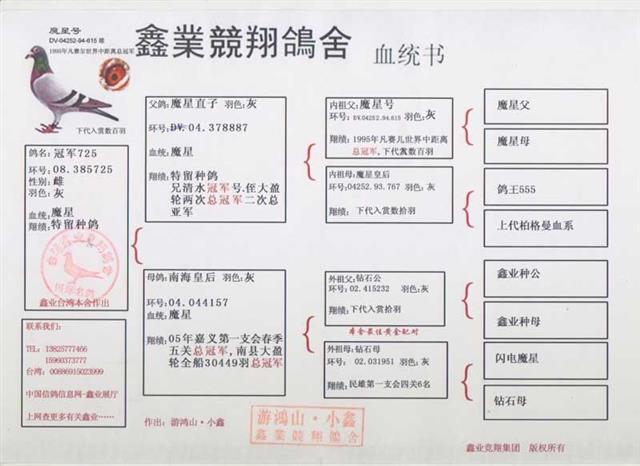 魔星号
DV-04252-94-615雄
1995年凡赛尔世界中距离总冠军
鑫業競翔鴿舍 血统书
下代入赏数百羽
鸽名：冠军725
环号：08.385725
性别：雌
羽色：灰
血统：魔星
翔绩：特留种鸽
鑫业台湾本舍作出
联系我们：
TEL：13825777466
15960373777
台湾：00886915023999
中国信鸽信息网--鑫业展厅
上网查更多有关鑫业……
父鸽：魔星直子 羽色：灰
环号：DV. 04.378887
血统：魔星
翔绩：特留种鸽
兄清水冠军号.侄大盈
轮两次总冠军二次总
亚军
母鸽：南海皇后 羽色：灰
环号：04.044157
血统：魔星
翔绩：05年嘉义第一支会春季
五关总冠军，南县大盈
轮全船30449羽总冠军
作出：游鸿山·小鑫
内祖父：魔星号 羽色：灰
环号：DV.04252.94.615
翔绩：1995年凡赛儿世界中距离
总冠军，下代赏数百羽
内祖母：魔星皇后
环号：04252.93.767 羽色：灰
翔绩：下代入赏数拾羽
外祖父：钻石公
环号：02.415232 羽色：灰
翔绩：下代入赏拾羽
本舍最佳黄金配对
外祖母：钻石母
环号：02.031951 羽色：灰
翔绩：民雄第一支会四关6名
魔星父
魔星母
鸽王555
上代柏格曼血系
鑫业种公
鑫业种母
闪电魔星
钻石母
游鴻山·小鑫
鑫業競翔鴿舍
鑫业竞翔集团 版权所有